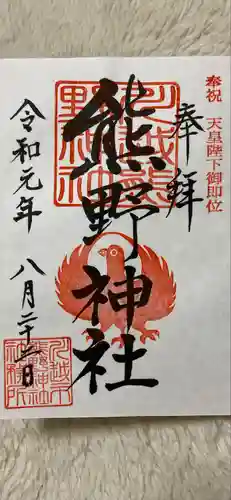 奉祝 天皇陛下御即位
奉拝
熊野神社
令和元年 八月二十三日